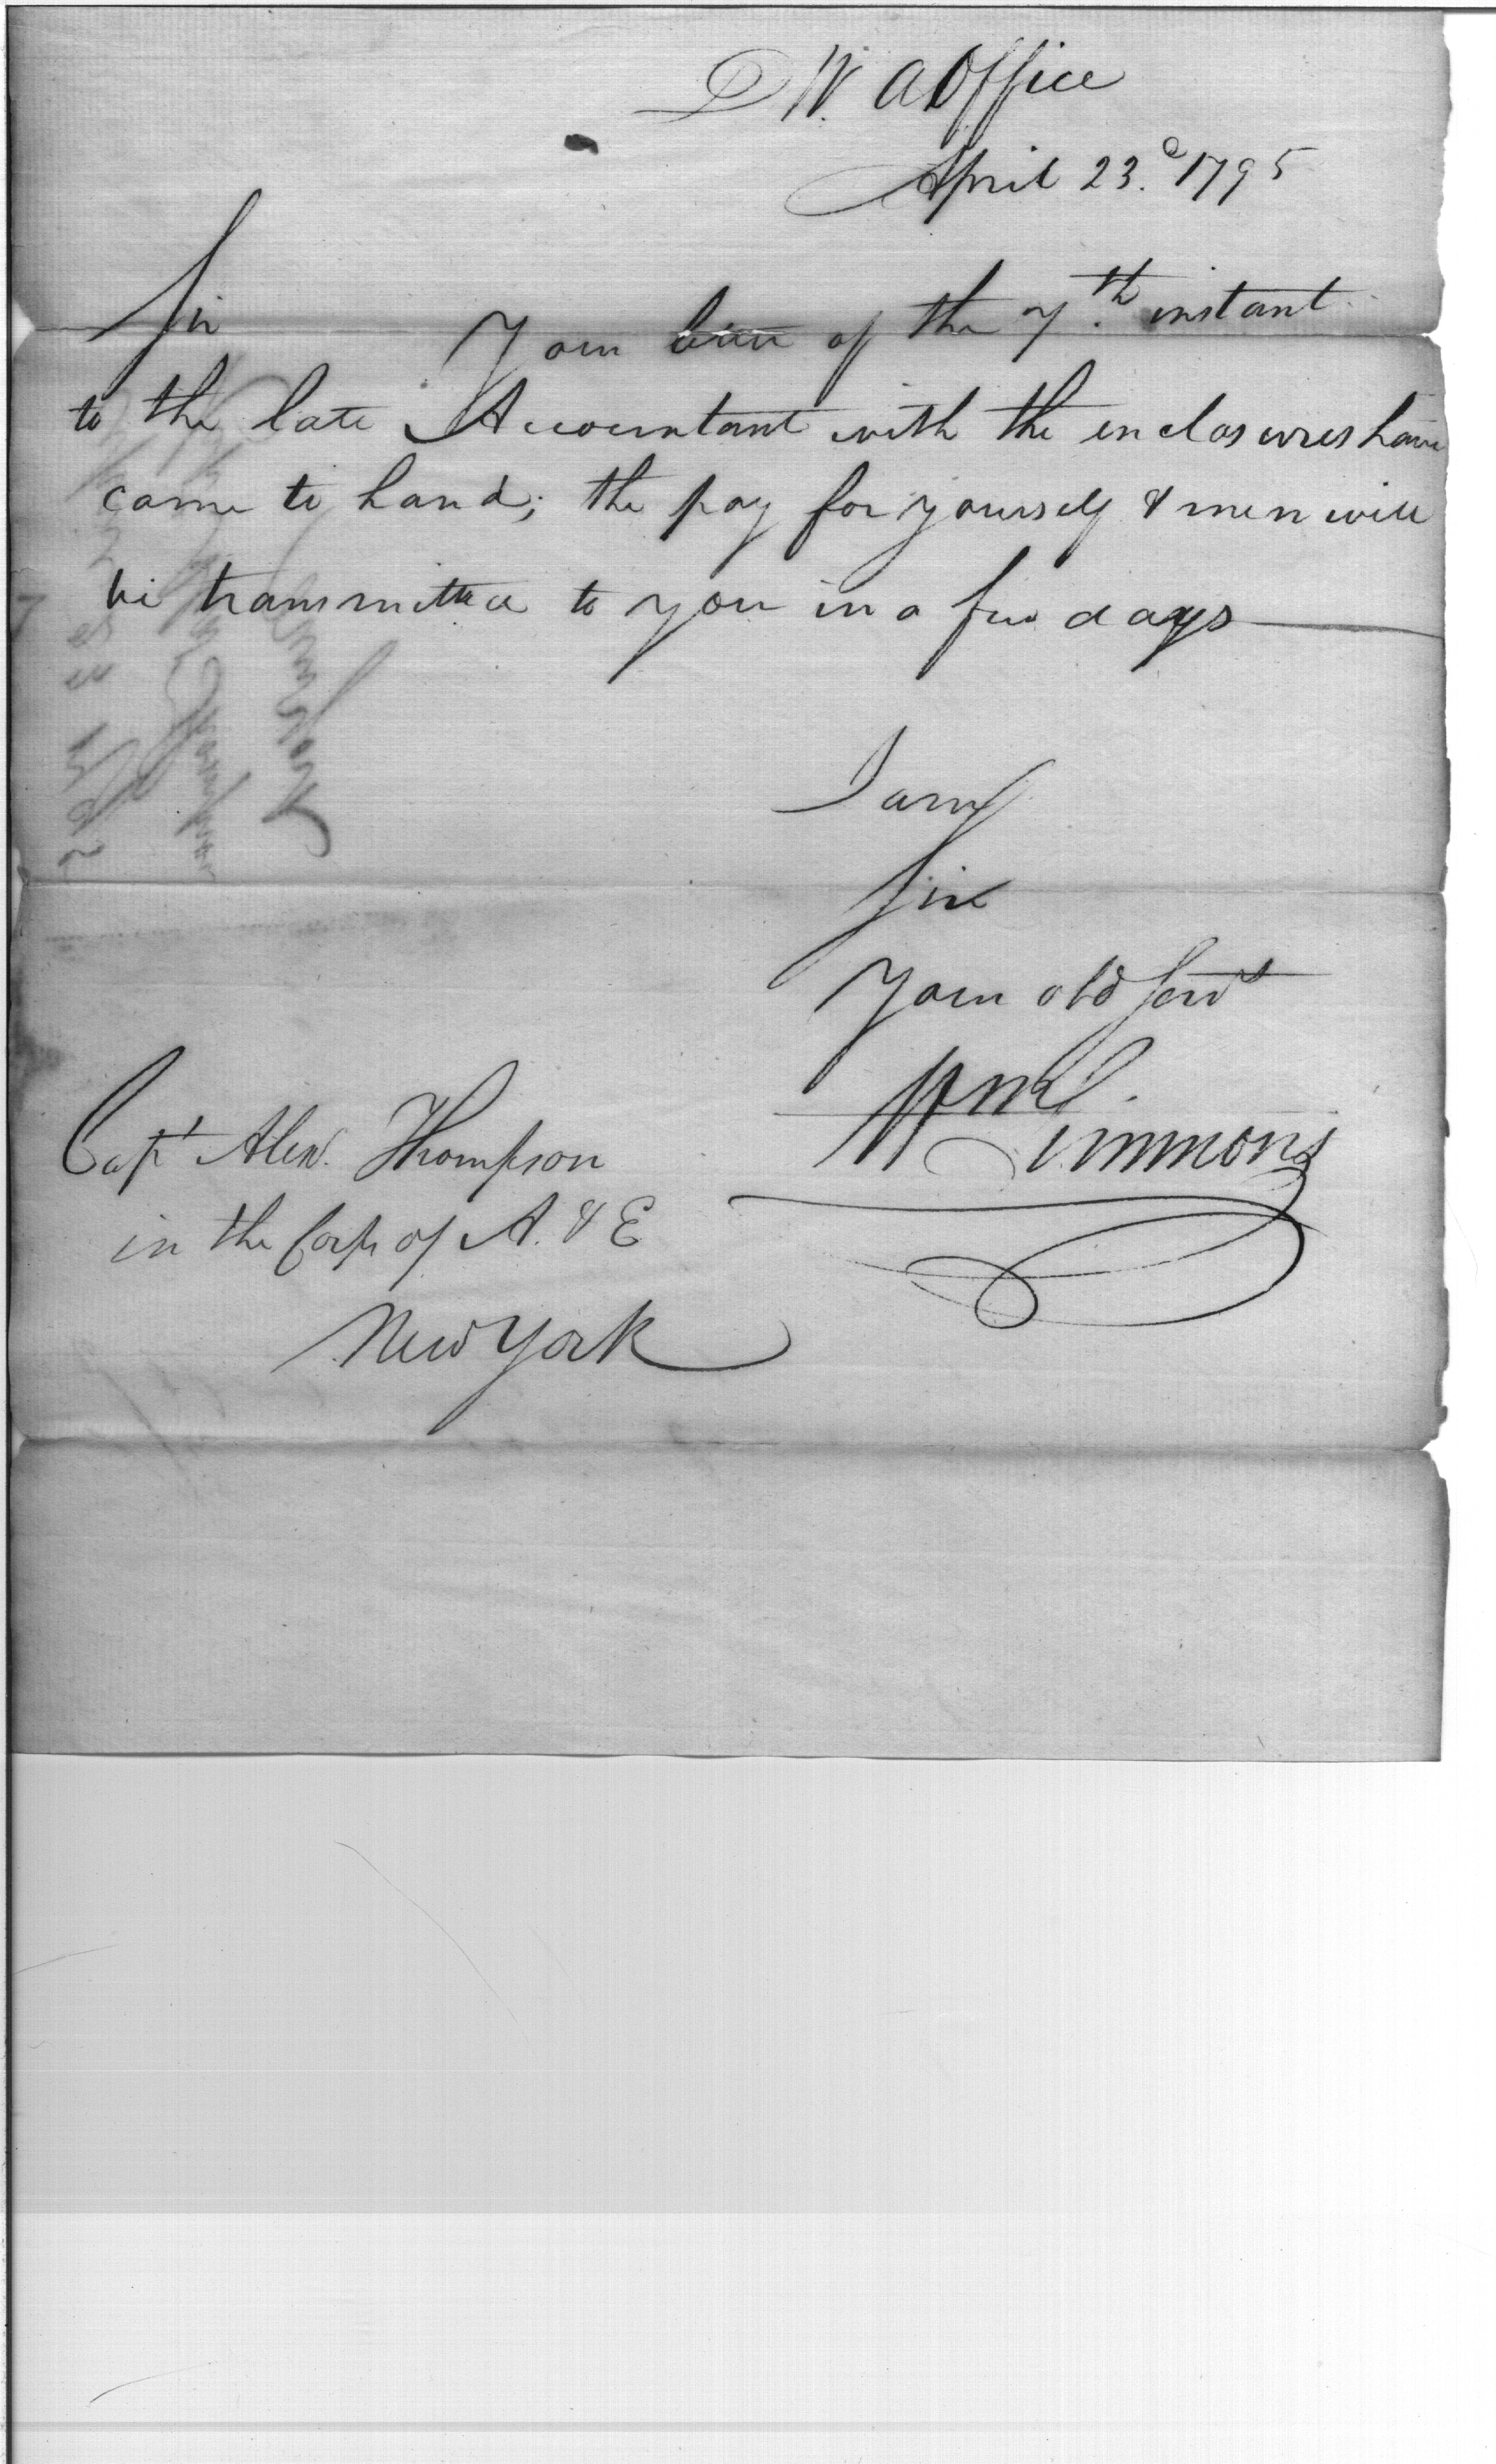 D W. A Office
April 23.d 1795
Sir
Your letter of the 7.th instant
to the late Accountant with the enclosures have
came to hand; the pay for yourself & men will
be transmitted to you in a few days
I am
Sir
Your obd Servt
Wm Simmons
Capt Alexr. Thompson
in the Corps of A. & E
New York